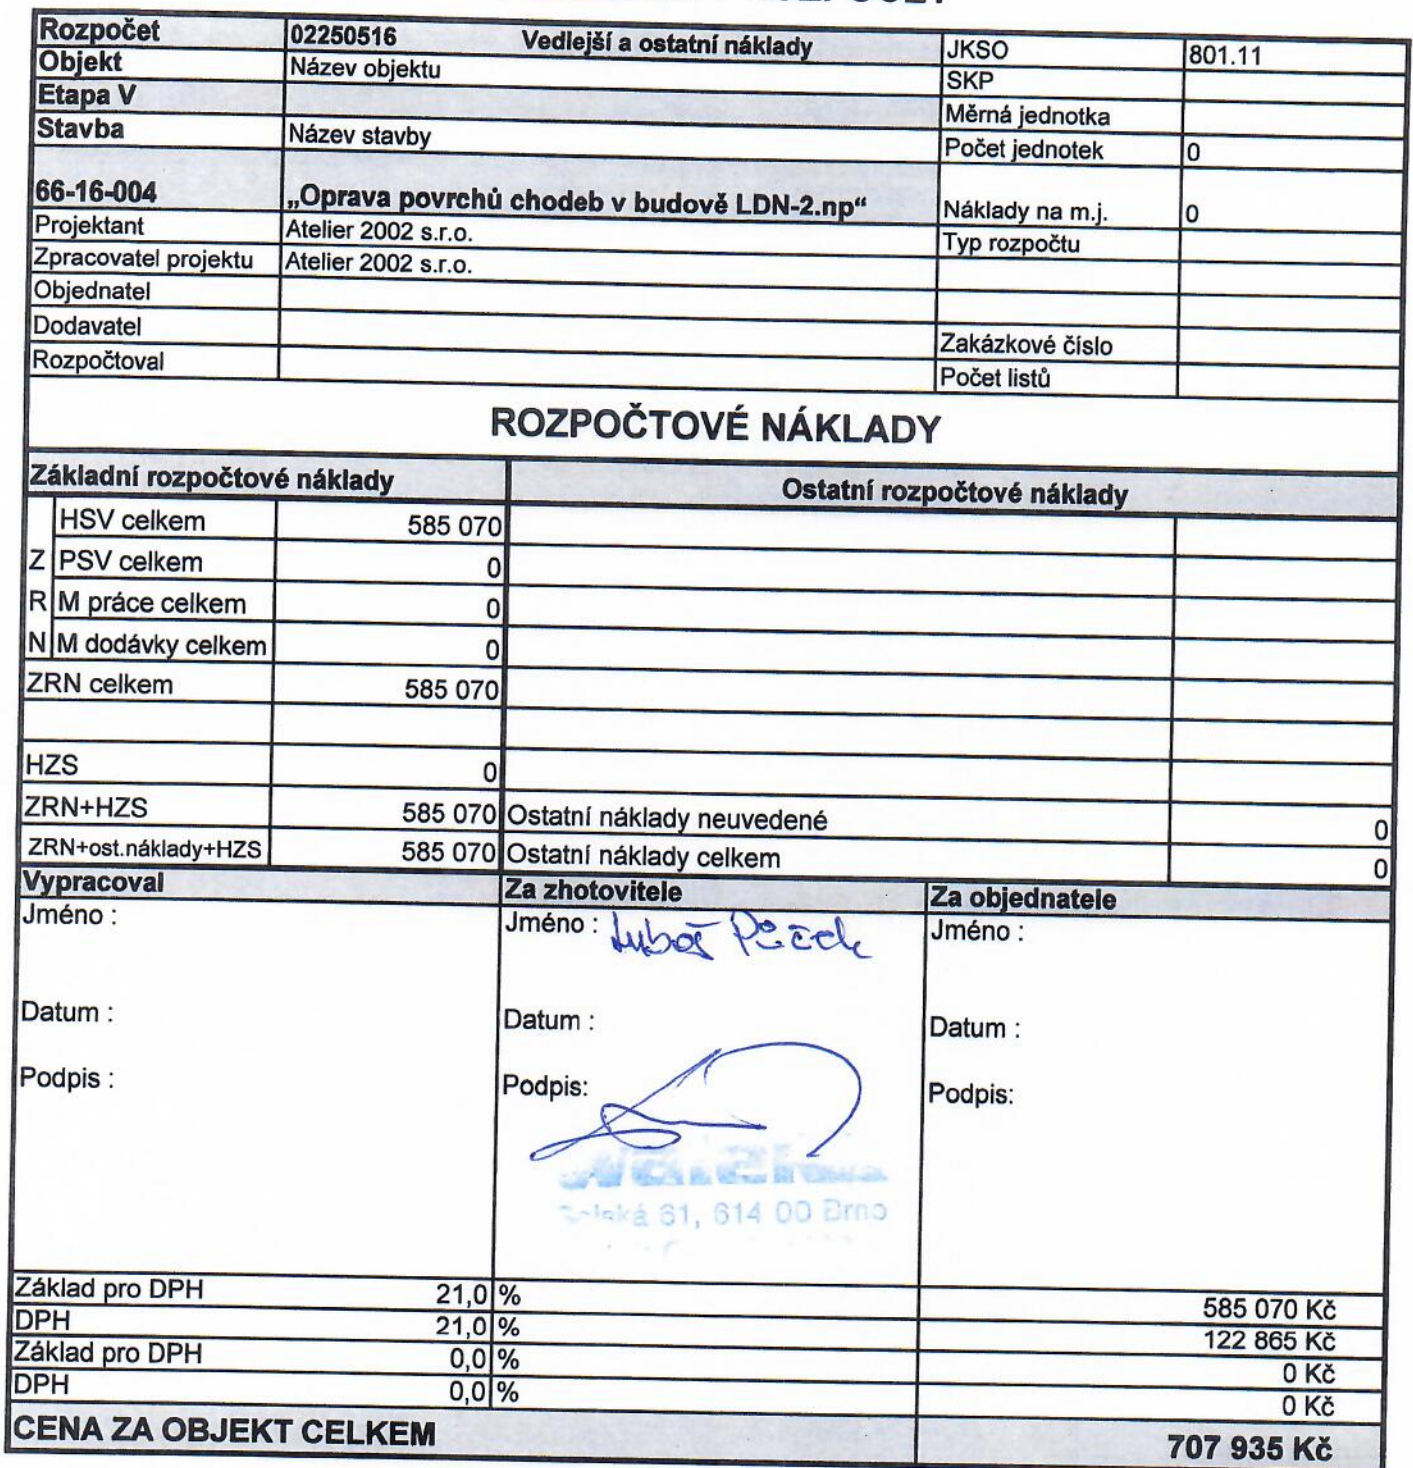 Rozpočet 02250516 Vedlejší a ostatní náklady JKSO 801.11
Objekt Název objektu SKP
Etapa V Měrná jednotka
Stavba Název stavby Počet jednotek 0
66-16-004 „Oprava povrchů chodeb v budově LDN-2.np“ Náklady na m.j. 0
Projektant Atelier 2002 s.r.o. Typ rozpočtu
Zpracovatel projektu Atelier 2002 s.r.o.
Objednatel
Dodavatel Zakázkové číslo
Rozpočtoval Počet listů
ROZPOČTOVÉ NÁKLADY
Základní rozpočtové náklady Ostatní rozpočtové náklady
HSV celkem 585 070
Z PSV celkem 0
R M práce celkem 0
N M dodávky celkem 0
ZRN celkem 585 070
HZS 0
ZRN+HZS 585 070 Ostatní náklady neuvedené 0
ZRN+ost.náklady+HZS 585 070 Ostatní náklady celkem 0
Vypracoval Za zhotovitele Za objednatele
Jméno : Jméno : Luboš Jméno :
Datum : Datum : Datum :
Podpis : Podpis: Podpis:
61, 614 00 Brno
Základ pro DPH 21,0 % 585 070 Kč
DPH 21,0 % 122 865 Kč
Základ pro DPH 0,0 % 0 Kč
DPH 0,0 % 0 Kč
CENA ZA OBJEKT CELKEM 707 935 Kč